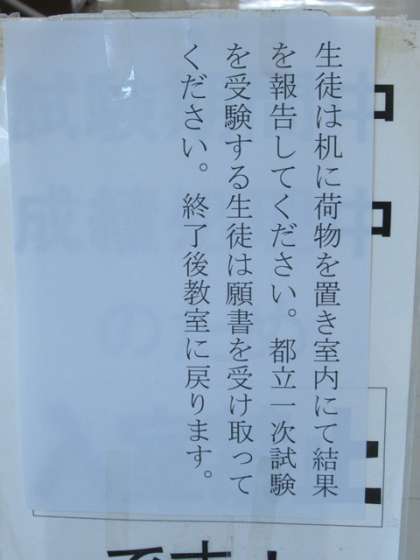 生徒は机に荷物を置き室内にて結果
を報告してください。都立一次試験
を受験する生徒は願書を受け取って
ください。終了後教室に戻ります。
中
中
です